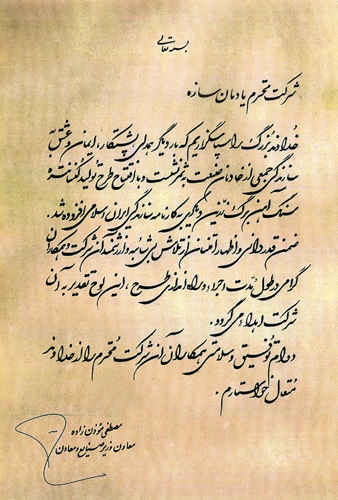 بسمه تعالی
شرکت محترم یادمان سازه
خداوند بزرگ را سپاسگزاریم که بار دیگر همدلی، پشتکار، ایمان و عشق به
سازندگی جمعی از خادمان صنعت به ثمر نشست و با افتتاح طرح تولید کنسانتره
سنگ آهن برگ زرین دیگری به کارنامه سازندگی ایران اسلامی افزوده شد.
ضمن قدردانی و اظهار امتنان از تلاش بی شائبه و ارزشمند آن شرکت و همکاران
گرامی در طول مدت اجراء و راه اندازی طرح، این لوح تقدیر به آن
شرکت اهداء می گردد.
دوام توفیق و سلامتی همکاران آن شرکت محترم را از خداوند
متعال خواستارم.
مصطفی موذن زاده
معاون وزیر صنایع و معادن